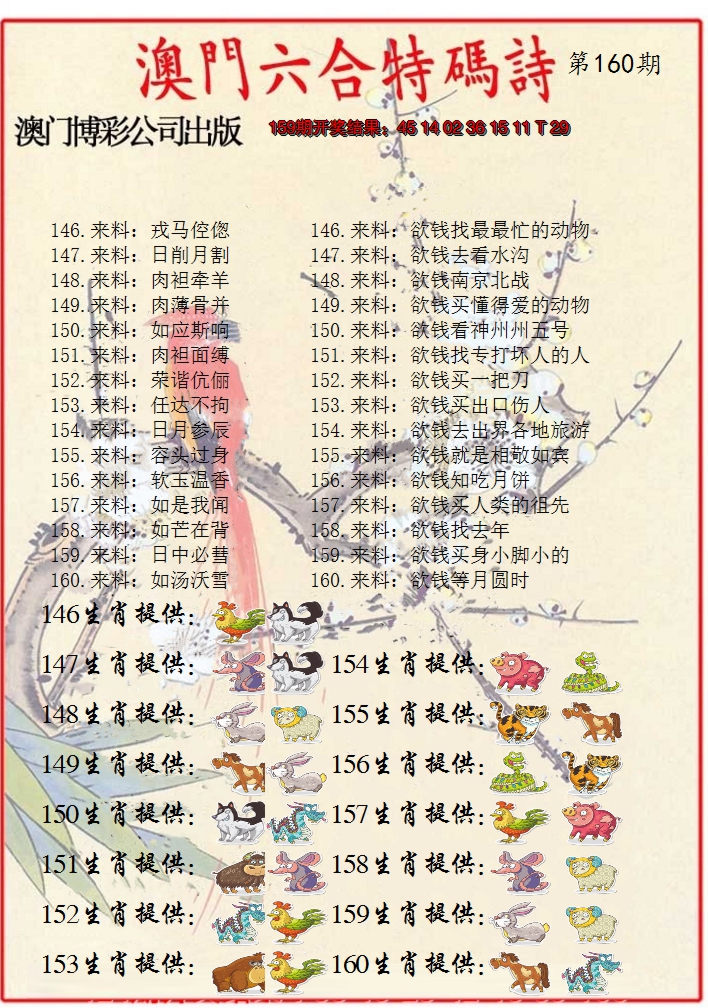 澳門六合特碼詩 第160期
澳门博彩公司出版 159期开奖结果：45 14 02 36 15 11 T 29
146.来料：戎马倥偬 146.来料：欲钱找最最忙的动物
147.来料：日削月割 147.来料：欲钱去看水沟
148.来料：肉袒牵羊 148.来料：欲钱南京北战
149.来料：肉薄骨并 149.来料：欲钱买懂得爱的动物
150.来料：如应斯响 150.来料：欲钱看神州州五号
151.来料：肉袒面缚 151.来料：欲钱找专打坏人的人
152.来料：荣谐伉俪 152.来料：欲钱买一把刀
153.来料：任达不拘 153.来料：欲钱买出口伤人
154.来料：日月参辰 154.来料：欲钱去出界各地旅游
155.来料：容头过身 155.来料：欲钱就是相敬如宾
156.来料：软玉温香 156.来料：欲钱知吃月饼
157.来料：如是我闻 157.来料：欲钱买人类的祖先
158.来料：如芒在背 158.来料：欲钱找去年
159.来料：日中必彗 159.来料：欲钱买身小脚小的
160.来料：如汤沃雪 160.来料：欲钱等月圆时
146生肖提供：
147生肖提供： 154生肖提供：
148生肖提供： 155生肖提供：
149生肖提供： 156生肖提供：
150生肖提供： 157生肖提供：
151生肖提供： 158生肖提供：
152生肖提供： 159生肖提供：
153生肖提供： 160生肖提供：